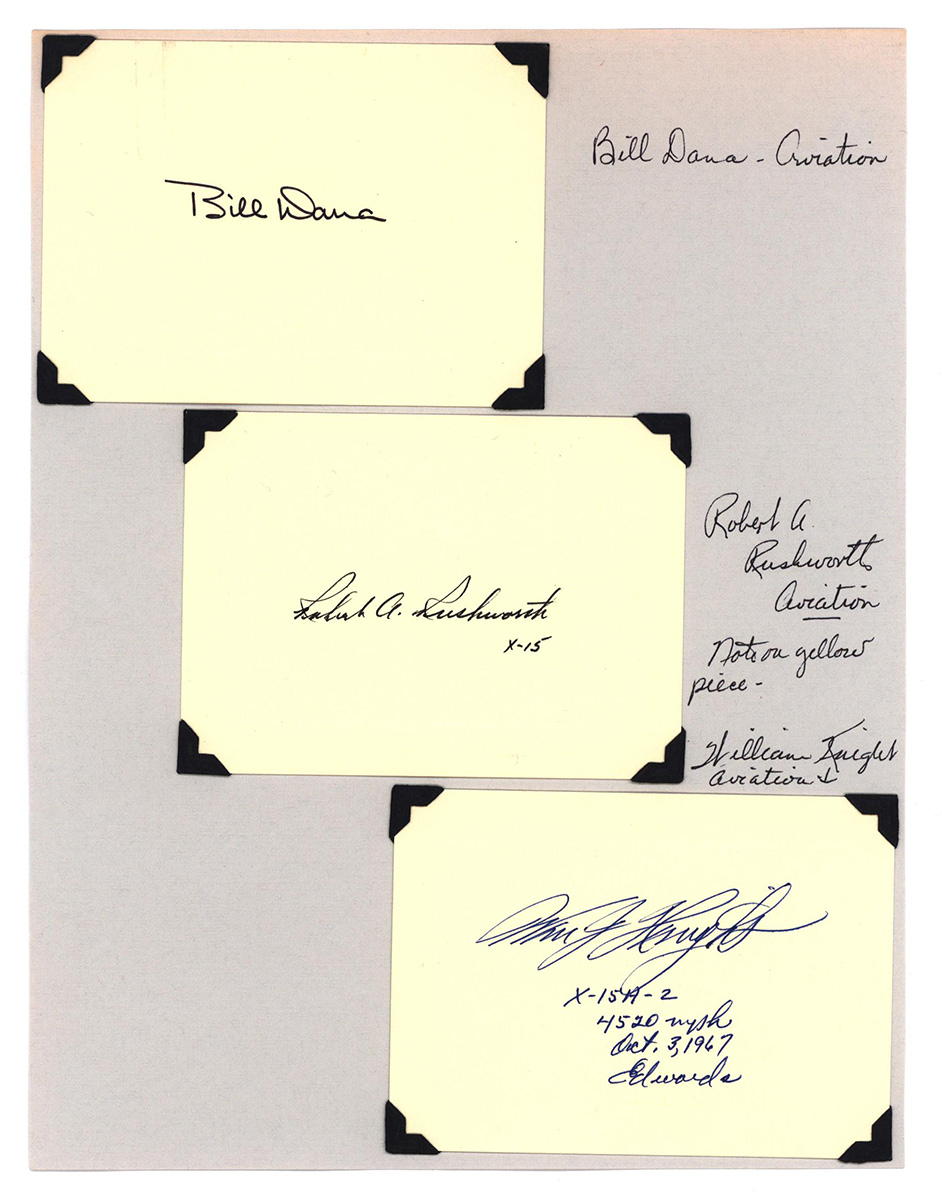 Bill Dana
Bill Dana - Aviation
Robert A. Rushworth
X-15
Robert A.
Rushworth
Aviation
Note on yellow
piece -
William Knight
Aviation
Wm J Knight
X-15A-2
4520 mph
Oct. 3, 1967
Edwards